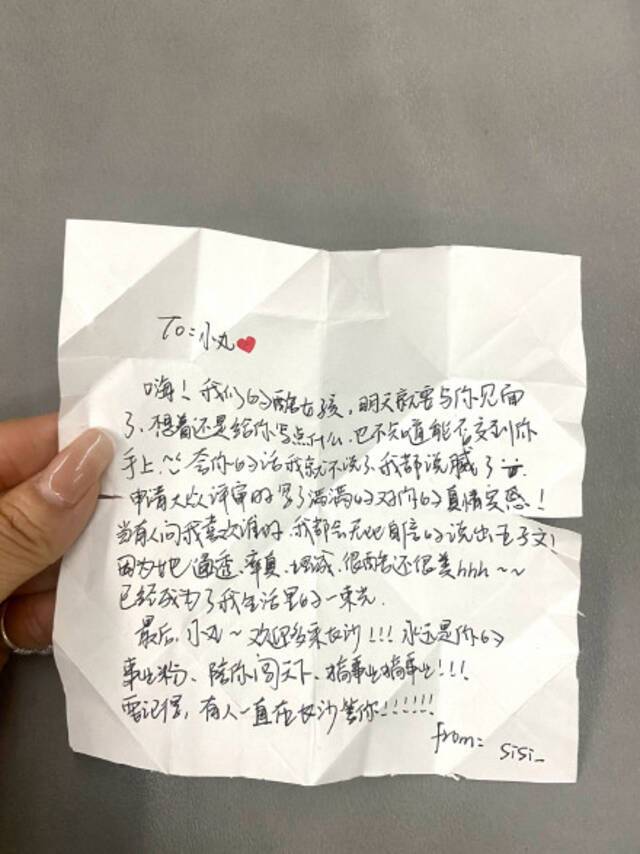 To：小丸
嗨！我们的酷女孩，明天就要与你见面
了，想着还是给你写点什么，也不知道能否交到你
手上，夸你的话我就不说了，我都说腻了
申请大众评审时写了满满的对你的真情实感！
当有人问我喜欢谁时，我都会无比自信的说出王子文！
因为她通透、率真、坦诚、很酷还很美hhh~~
已经成为了我生活里的一束光
最后，小丸~欢迎多来长沙！！！永远是你的
事业粉、陪你闯天下、搞事业搞事业！！！
要记得，有人一直在长沙等你！！！！！！
from：sisi_